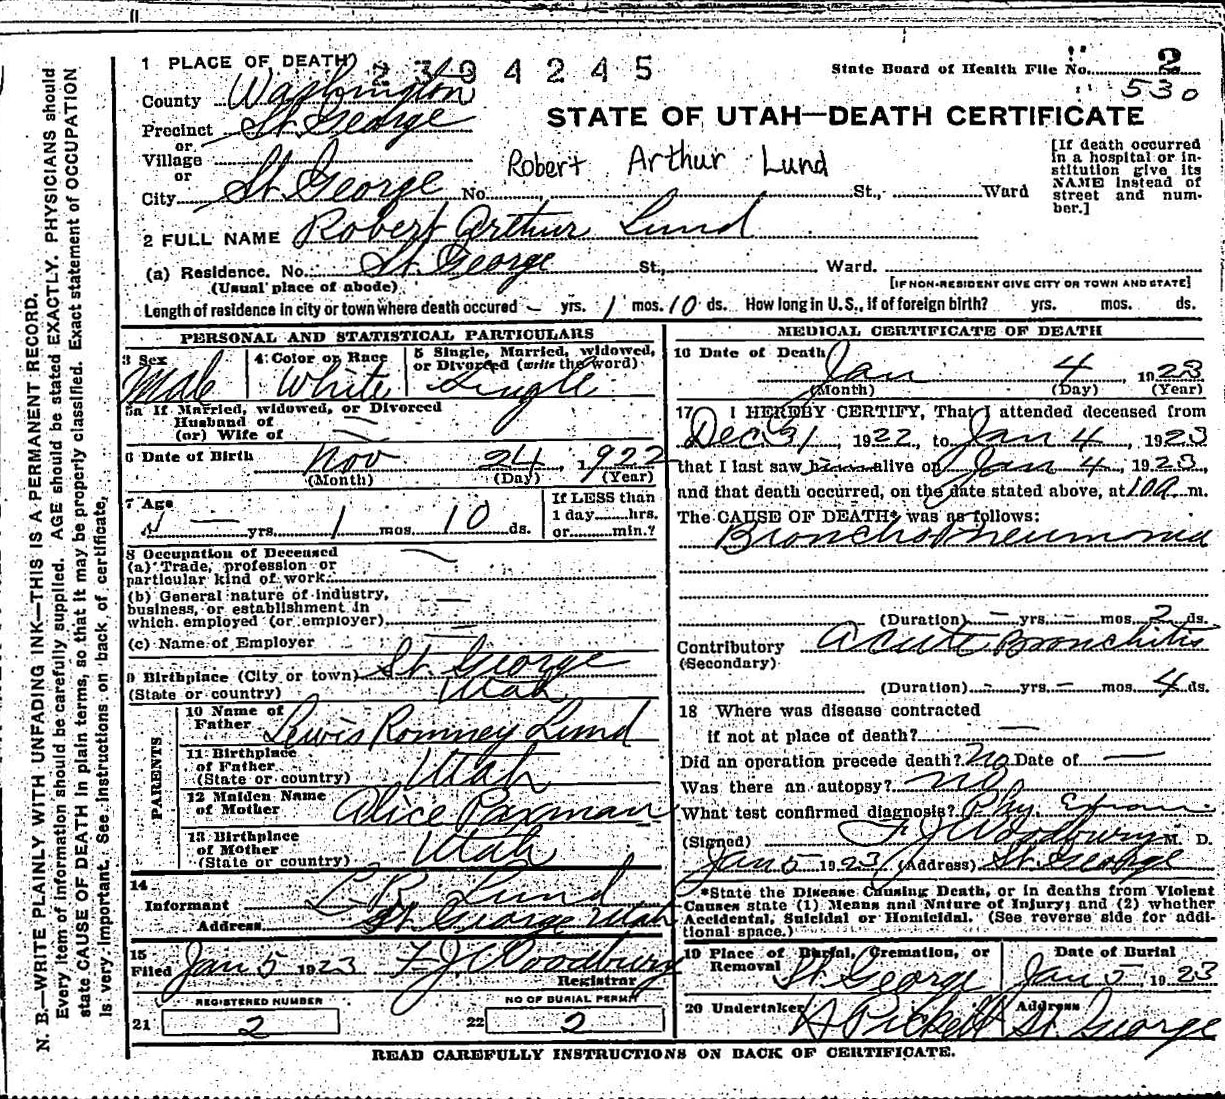 1 PLACE OF DEATH 2 3 0 4 2 4 5
State Board of Health File No. 2
530
County Washington
Precinct St. George
or
Village
or
City St George No. St., Ward
STATE OF UTAH—DEATH CERTIFICATE
Robert Arthur Lund
[If death occurred
in a hospital or in-
stitution give its
NAME instead of
street and num-
ber.]
2 FULL NAME Robert Arthur Lund
(a) Residence. No. St. George St., Ward.
(Usual place of abode) [IF NON-RESIDENT GIVE CITY OR TOWN AND STATE]
Length of residence in city or town where death occured – yrs. 1 mos. 10 ds. How long in U.S., if of foreign birth? yrs. mos. ds.
PERSONAL AND STATISTICAL PARTICULARS
3 Sex
Male
4 Color or Race
White
5 Single, Married, widowed,
or Divorced (write the word)
Single
5a If Married, widowed, or Divorced
Husband of
(or) Wife of —
6 Date of Birth Nov 24, 1922
(Month) (Day) (Year)
7 Age
— yrs. 1 mos. 10 ds.
If LESS than
1 day......hrs.
or......min.?
8 Occupation of Deceased
(a) Trade, profession or
particular kind of work. —
(b) General nature of industry,
business, or establishment in
which employed (or employer) —
(c) Name of Employer —
9 Birthplace (City or town) St. George
(State or country) Utah
PARENTS
10 Name of
Father Lewis Romney Lund
11 Birthplace
of Father
(State or country) Utah
12 Maiden Name
of Mother Alice Paxman
13 Birthplace
of Mother
(State or country) Utah
14
Informant L. R. Lund
Address St. George Utah
15
Filed Jan 5 1923 F J Woodbury
Registrar
REGISTERED NUMBER
21 2
NO OF BURIAL PERMIT
22 2
MEDICAL CERTIFICATE OF DEATH
16 Date of Death Jan 4, 1923
(Month) (Day) (Year)
17 I HEREBY CERTIFY, That I attended deceased from
Dec 31, 1922, to Jan 4, 1923
that I last saw him alive on Jan 4, 1923,
and that death occurred, on the date stated above, at 10 a. m.
The CAUSE OF DEATH* was as follows:
Broncho Pneumonia
(Duration) – yrs. – mos. 2 ds.
Contributory Acute Bronchitis
(Secondary)
(Duration) – yrs. – mos. 4 ds.
18 Where was disease contracted
if not at place of death? —
Did an operation precede death? no Date of —
Was there an autopsy? no
What test confirmed diagnosis? Phy. Exam
(Signed) F J Woodbury M. D.
Jan 5 1923 (Address) St. George
*State the Disease Causing Death, or in deaths from Violent
Causes state (1) Means and Nature of Injury; and (2) whether
Accidental, Suicidal or Homicidal. (See reverse side for addi-
tional space.)
19 Place of Burial, Cremation, or
Removal St George
Date of Burial
Jan 5 1923
20 Undertaker A Pickett
Address
St. George
READ CAREFULLY INSTRUCTIONS ON BACK OF CERTIFICATE.
N. B.—WRITE PLAINLY WITH UNFADING INK—THIS IS A PERMANENT RECORD.
Every item of information should be carefully supplied. AGE should be stated EXACTLY. PHYSICIANS should
state CAUSE OF DEATH in plain terms, so that it may be properly classified. Exact statement of OCCUPATION
is very important. See instructions on back of certificate,